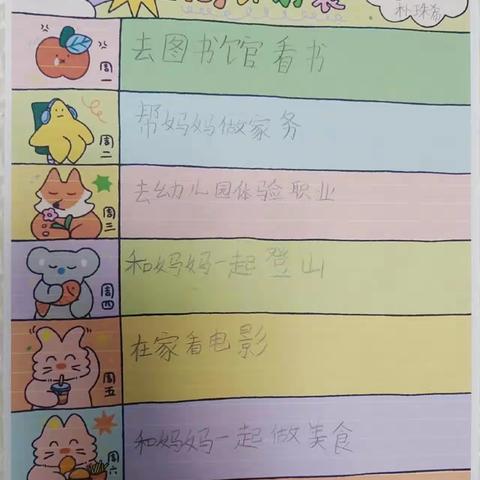 周一
去图书馆看书
周二
帮妈妈做家务
周三
去幼儿园体验职业
周四
和妈妈一起登山
周五
在家看电影
周六
和妈妈一起做美食